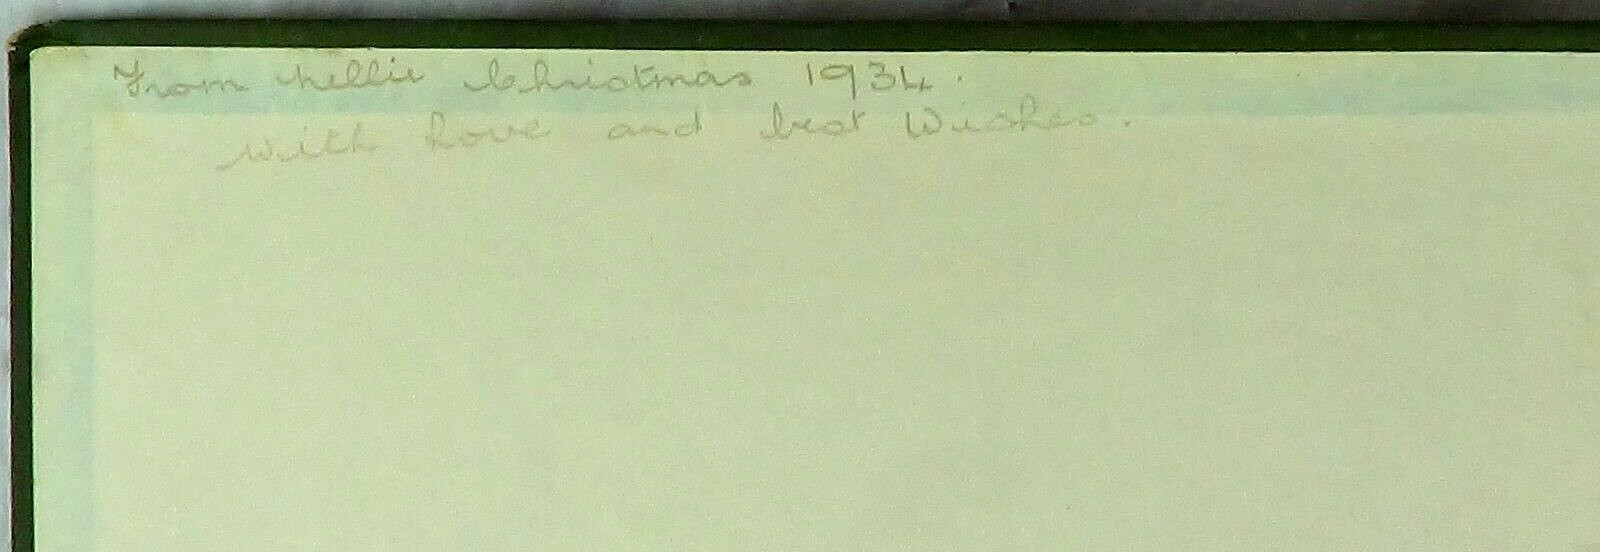 From Nellie Christmas 1934.
with love and best Wishes.